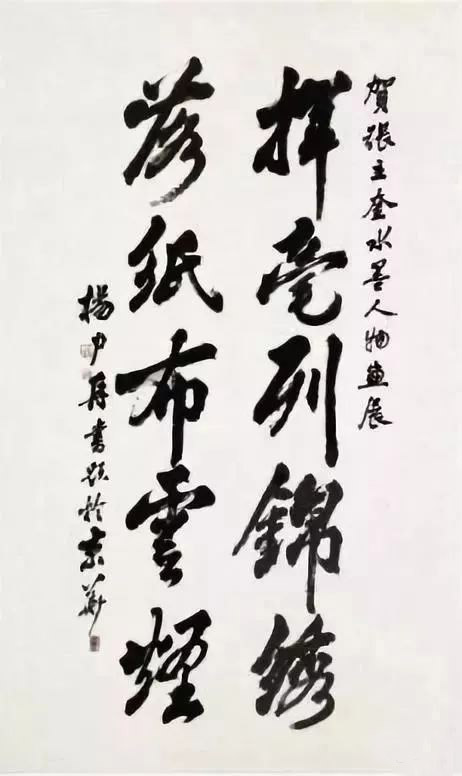 賀張立奎水墨人物畫展
揮毫列錦綉
落紙布雲煙
楊中書題於京華